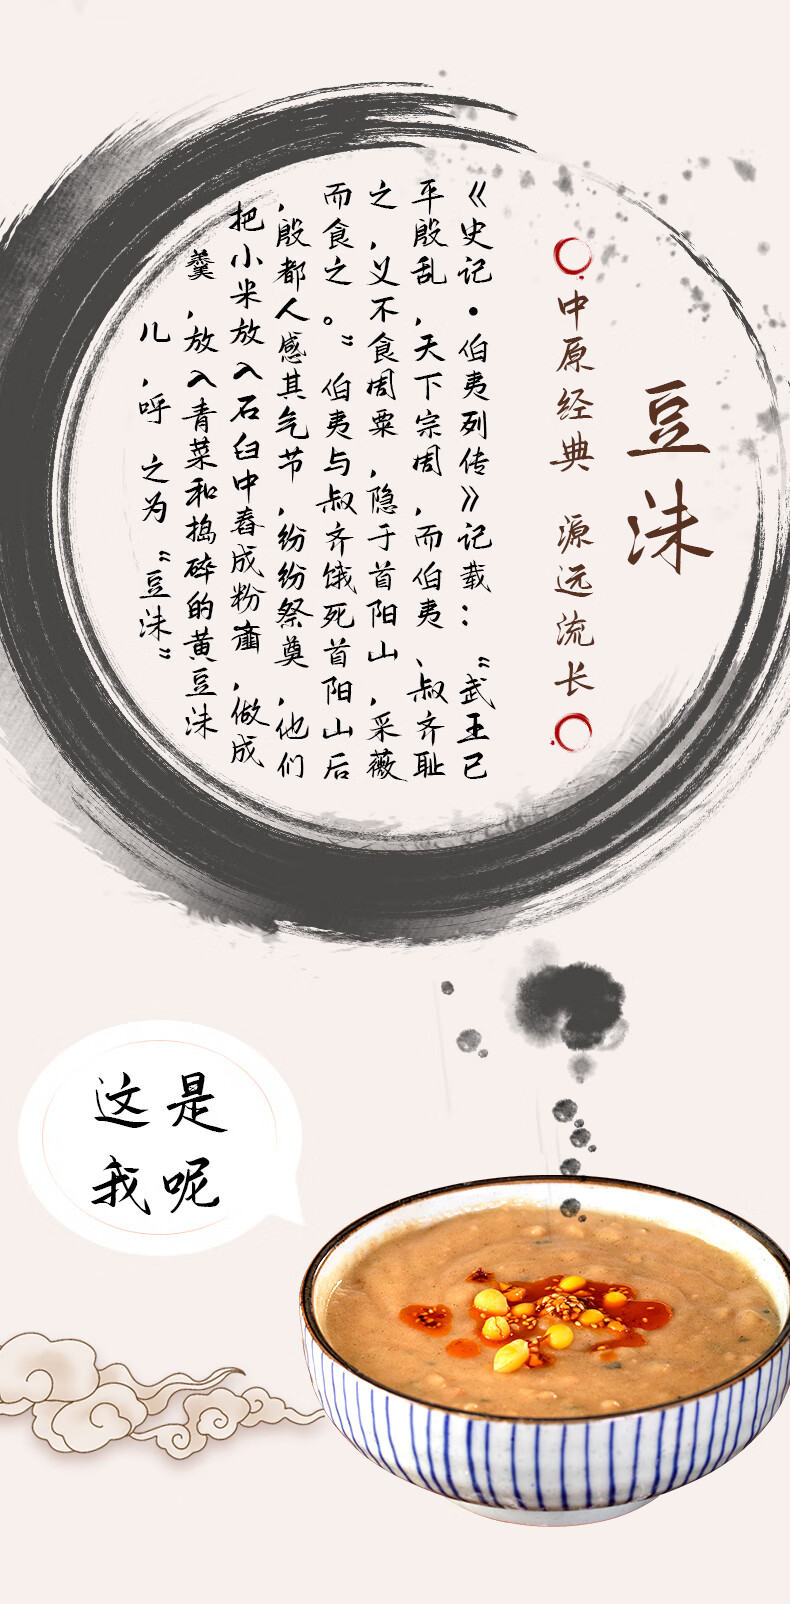 豆沫
中原经典 源远流长
《史记·伯夷列传》记载：“武王已
平殷乱，天下宗周，而伯夷、叔齐耻
之，义不食周粟，隐于首阳山，采薇
而食之。”伯夷与叔齐饿死首阳山后
，殷都人感其气节，纷纷祭奠，他们
把小米放入石臼中舂成粉齑，做成
羹，放入青菜和捣碎的黄豆沫
儿，呼 之为“豆沫”
这是
我呢